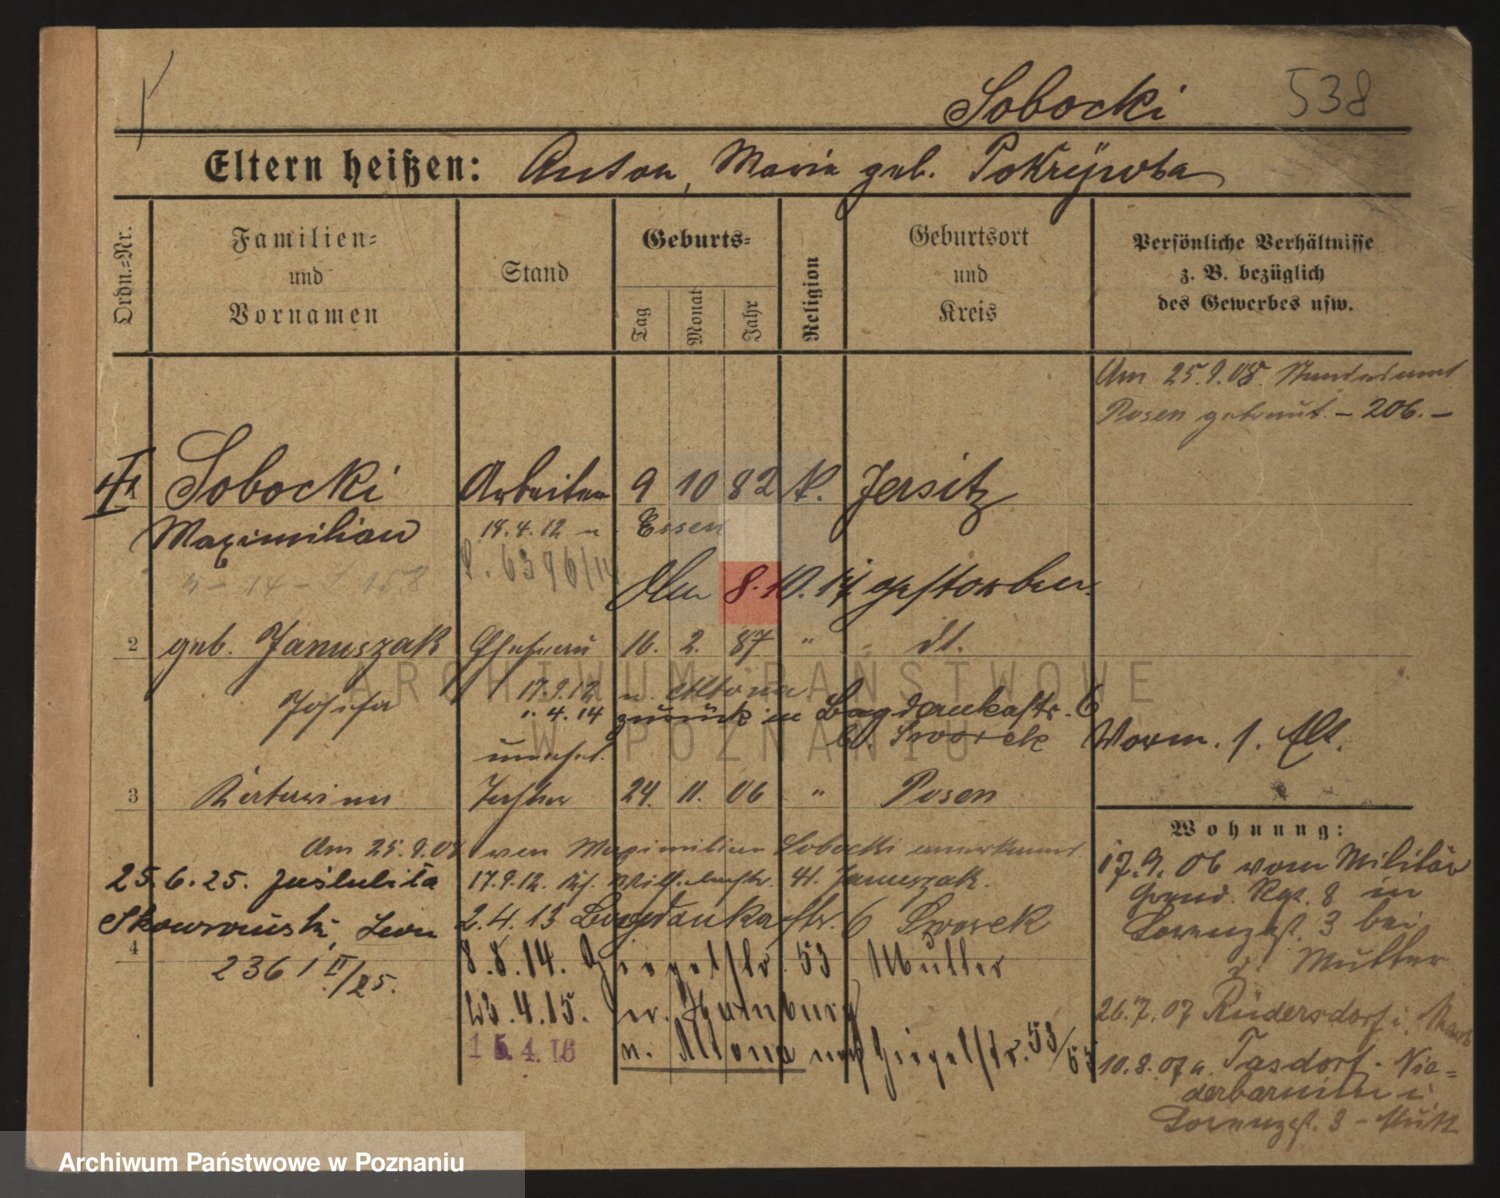 Sobocki 538
Eltern heißen: Anton, Maria geb. Pokrÿwka
Ordn.=Nr.
Familien=
und
Vornamen
Stand
Geburts=
Tag
Monat
Jahr
Religion
Geburtsort
und
Kreis
Persönliche Verhältnisse
z. B. bezüglich
des Gewerbes usw.
Am 25.9.08. Standesamt
Posen getraut. – 206. –
Sobocki Arbeiter 9 10 82 k. Jersitz
Maximilian 18.4.12 n Essen
6396/14
Am 8.10.14 gestorben.
2 geb. Januszak Ehefrau 16. 2. 87 " " dt.
Josefa 17.9.12 n. Altona
1.4.14 zurück in Bogdankastr. 6
b/ Sworek
Vorm. 1. Alt.
unehel.
3 Katarina Tochter 24. 11. 06 " Posen
Am 25.9.08 von Maximilian Sobocki anerkannt
Wohnung:
25.6.25. 17.9.12. 41. Januszak.
Skowroński, Leon 2.4.13 Bogdankastr. 6 Sworek
4
2361 II/25.
8.8.14. Ziegelstr. 53 Mutter
23.4.15. n. Hamburg
15.4.16 n. Altona nach Ziegelstr. 53/55
17.9.06 vom Militär
Grend. Rgt. 8 in
Lorenzst. 3 bei
d. Mutter
26.7.07 Rüdersdorf i. Mark
10.8.07 a. Tasdorf. Nie=
derbarnim i.
Lorenzst. 3 – Mutt
ARCHIWUM PAŃSTWOWE
W POZNANIU
Archiwum Państwowe w Poznaniu